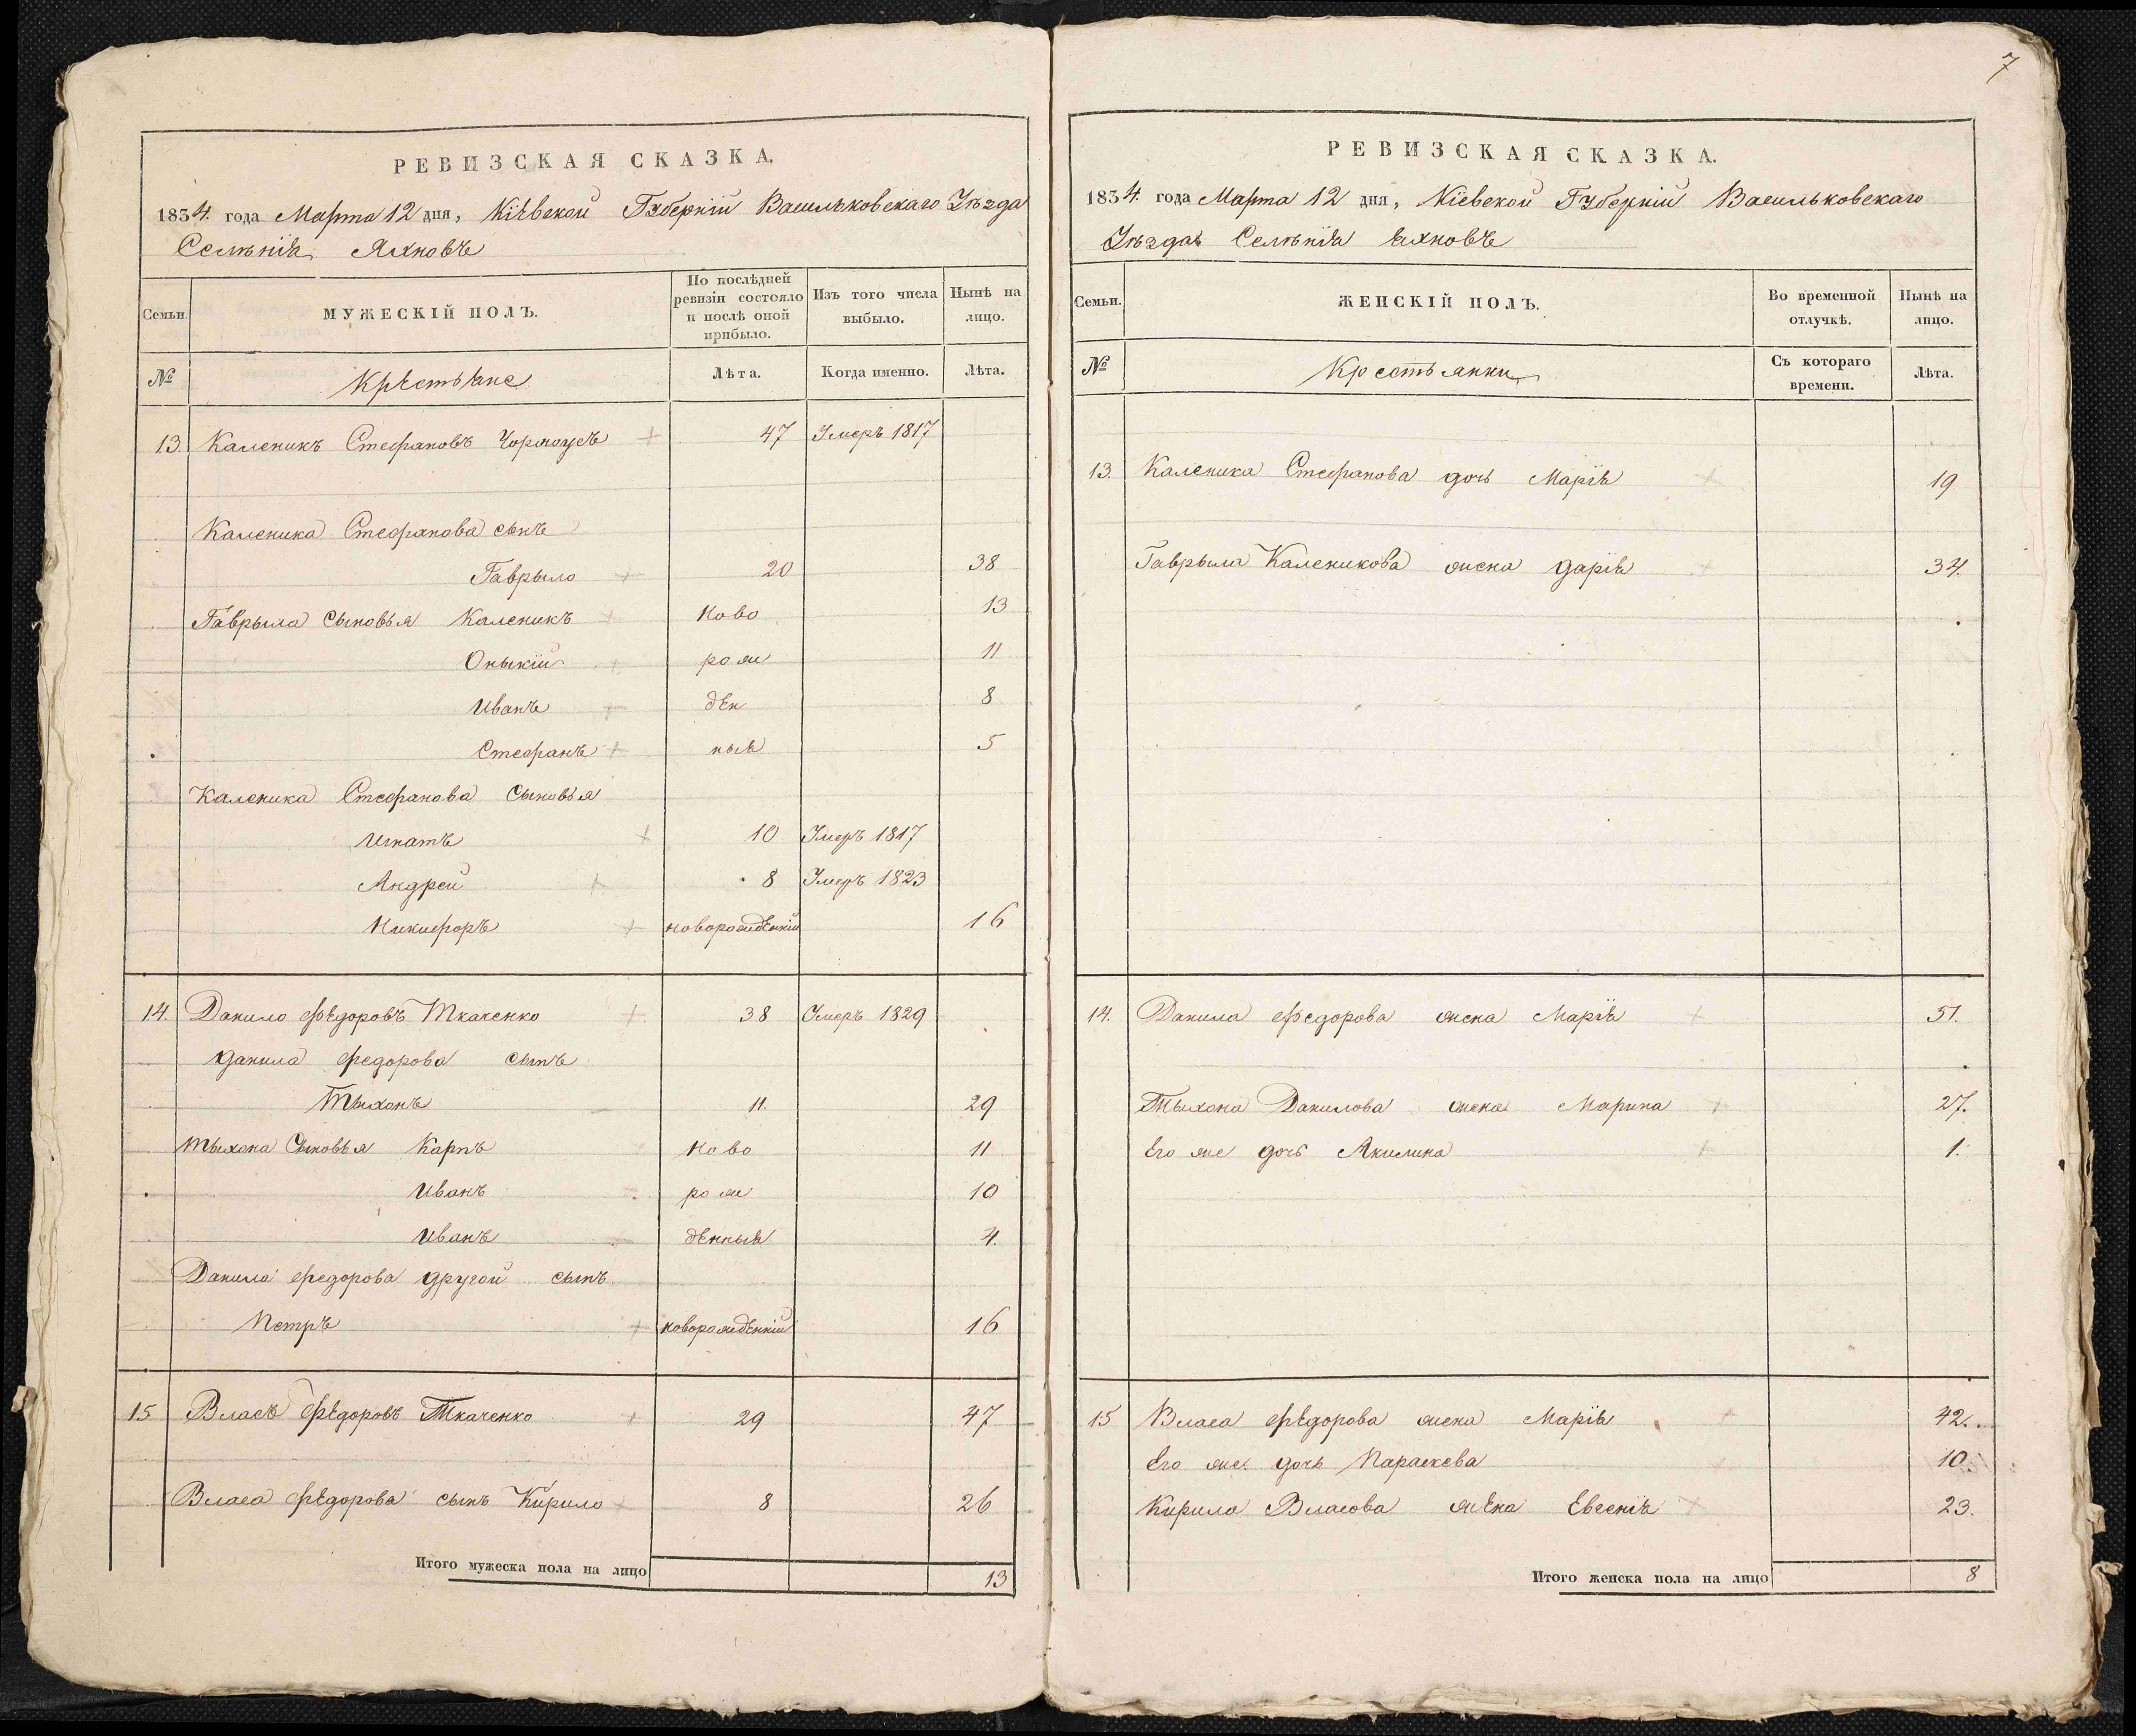 РЕВИЗСКАЯ СКАЗКА.
1834. года Марта 12 дня, Кіевской Губерніи Васильковскаго Уѣзда
Селѣнія Яхновъ
Семьи.
МУЖЕСКІЙ ПОЛЪ.
По послѣдней ревизіи состояло и послѣ оной прибыло.
Изъ того числа выбыло.
Нынѣ на лицо.
№
Крестьяне
Лѣта.
Когда именно.
Лѣта.
13. Каленикъ Стефановъ Чорноусъ 47 Умеръ 1817
Каленика Стефанова сынъ
Гаврыло 20 38
Гаврыла сыновья Каленикъ Ново 13
Оныкій рож 11
Иванъ ден 8
Стефанъ ныя 5
Каленика Стефанова сыновья
Игнатъ 10 Умеръ 1817
Андрей 8 Умеръ 1823
Никифоръ новорожденній 16
14. Данило Федоровъ Ткаченко 38 Умеръ 1829
Данила Федорова сынъ
Тыхонъ 11. 29
Тыхона Сыновья Карпъ Ново 11
Иванъ рож 10
Иванъ денныя 4.
Данила Федорова другой сынъ
Петръ новорожденній 16
15 Власъ Федоровъ Ткаченко 29 47
Власа Федорова сынъ Кирило 8 26
Итого мужеска пола на лицо 13
7
РЕВИЗСКАЯ СКАЗКА.
1834. года Марта 12 дня, Кіевской Губерніи Васильковскаго
Уѣзда Селѣнія Яхновъ
Семьи.
ЖЕНСКІЙ ПОЛЪ.
Во временной отлучкѣ.
Нынѣ на лицо.
№
Крестьянки
Съ котораго времени.
Лѣта.
13. Каленика Стефанова дочь Марія 19
Гаврыла Каленикова жена Дарія 34.
14. Данила Федорова жена Марія 51.
Тыхона Данилова жена Марина 27.
Его же дочь Акилина 1.
15 Власа Федорова жена Марія 42.
Его же дочь Параскева 10.
Кирила Власова жена Евгенія 23.
Итого женска пола на лицо 8